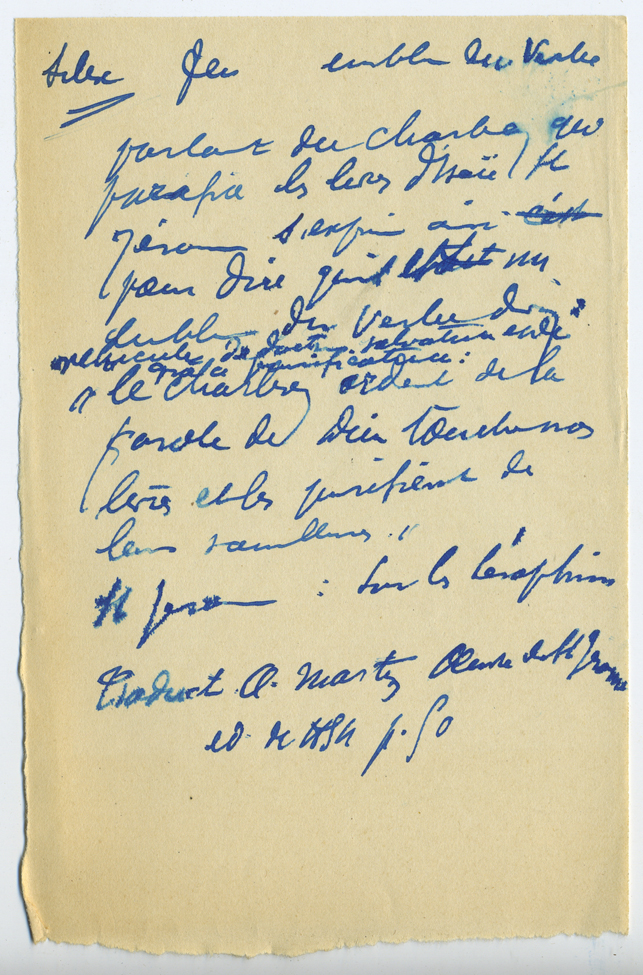 Silex Feu emblème du Verbe
parlant du charbon qui
purifia les lèvres d'Isaïe St
Jérome s'exprime ainsi
pour dire qu'il est un
emblème du Verbe divin
"véhicule de doctrine salvatrice et de
grâce purificatrice :
"le charbon ardent de la
parole de Dieu touche nos
lèvres et les purifient de
leurs souillures."
St Jerome : sur les Séraphins
Traduct. Martz Œuvre de St Jerome
ed. de p. 50